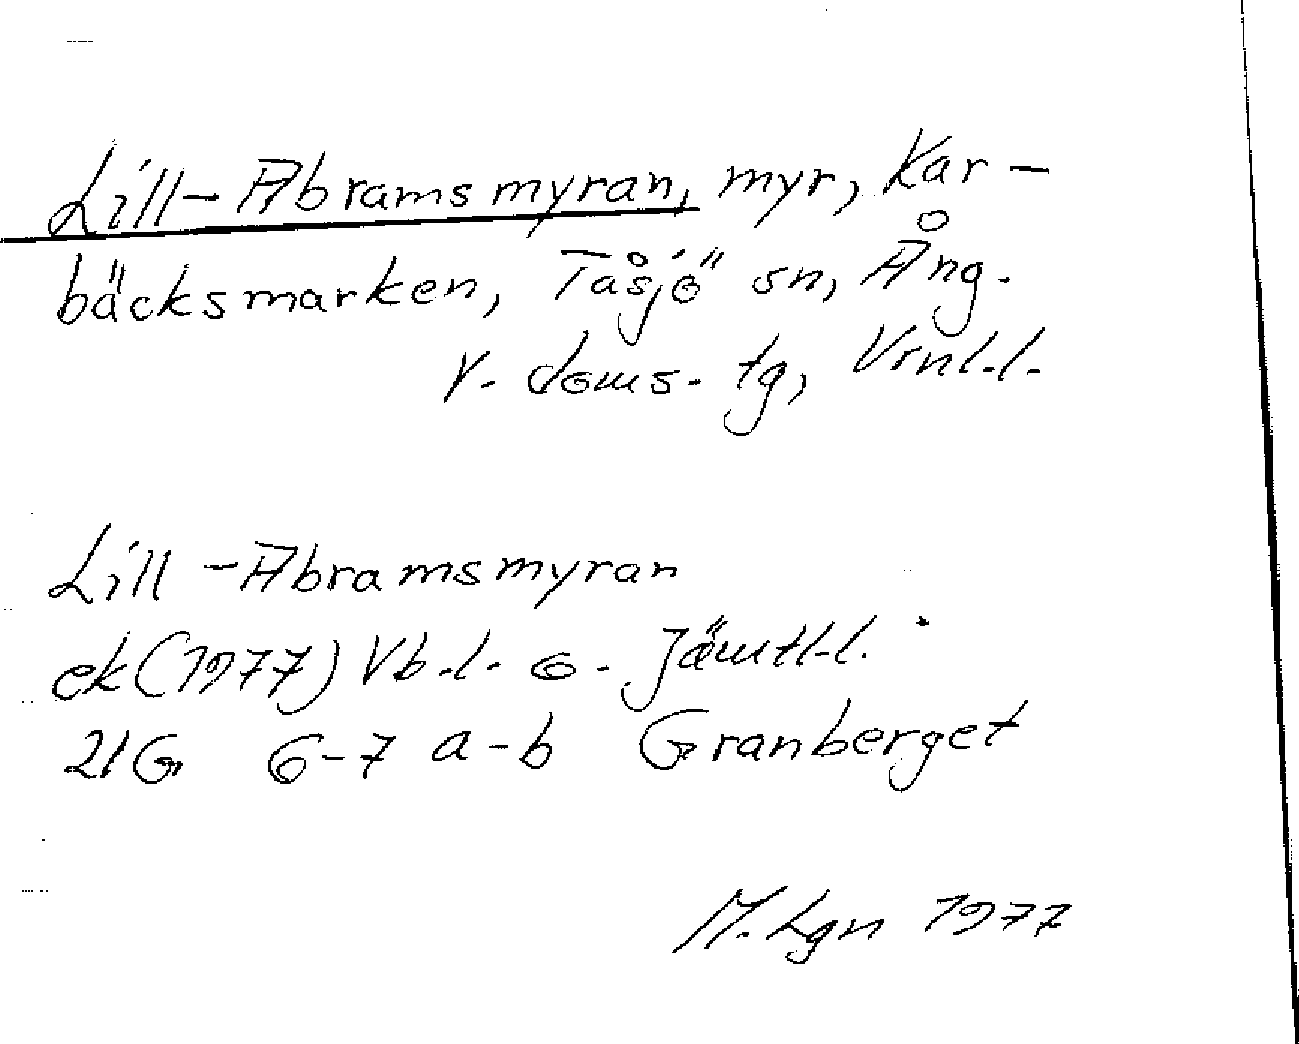 Lill-Abramsmyran, myr, Kar-
bäcksmarken, Tåsjö sn, Ång.
v. doms. tg, Vrnl.l.
Lill-Abramsmyran
ek (1977) Vb.l. o. Jämtl.l.
21G 6-7 a-b Granberget
M. Lgn 1977